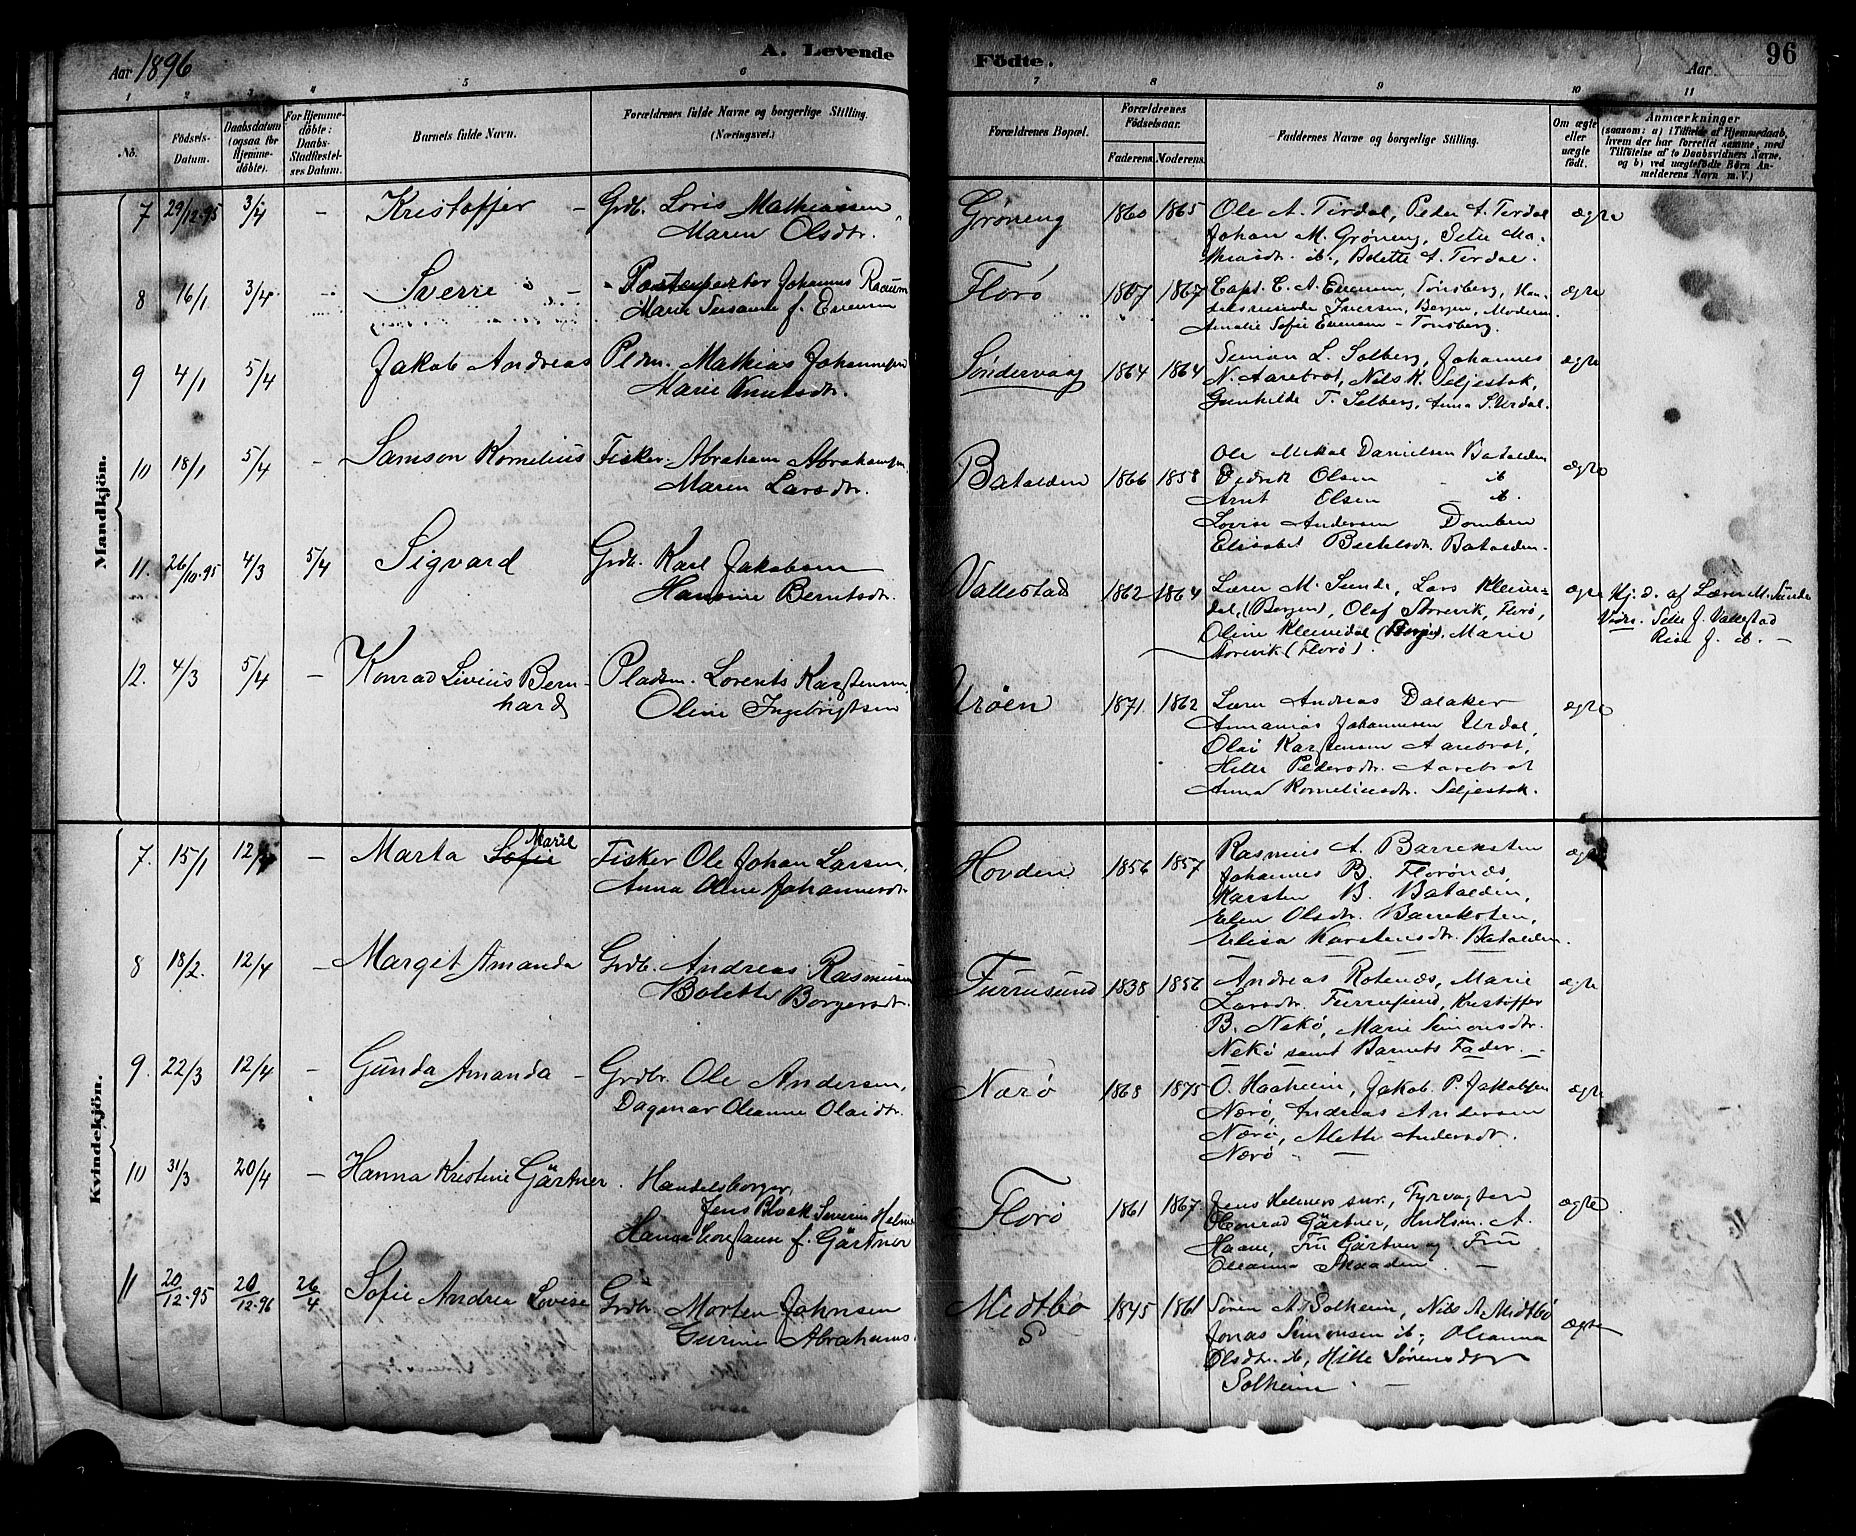 Aar 1896
A. Levende
Fødte.
Aar
96
1 2 3 4 5 6 7 8 9 10 11
No.
Fødsels-
Datum.
Daabsdatum
(ogsaa for
Hjemme-
døbte).
For Hjemme-
døbte:
Daabs-
Stadfæstel-
ses Datum.
Barnets fulde Navn.
Forældrenes fulde Navne og borgerlige Stilling.
(Næringsvei.)
Forældrenes Bopæl.
Forældrenes
Fødselsaar.
Faderens. Moderens.
Faddernes Navne og borgerlige Stilling.
Om ægte
eller
uægte
født.
Anmærkninger
(saasom: a) i Tilfælde af Hjemmedaab,
hvem der har forrettet samme, med
Tilføielse af to Daabsvidners Navne,
og b) ved uægtefødte Børn An-
melderens Navn m. V.)
Mandkjøn.
7 29/12.95 3/4 - Kristoffer - Grdb. Loris Mathiassen
Maren Olsdtr.
Grøneng 1860 1865 Ole A. Terdal, Peder A. Terdal ægte
Johan M. Grøneng, Sille Ma-
thiasdtr. ib., Bolette A. Terdal.
8 16/1 3/4 Sverre - Johannes
Marie Susanne f. Evensen
Florø 1867 1867 Capt. C. A. Evensen, Tønsberg, ægte
Iversen, Bergen, Moderen
Amalie Sofie Evensen - Tønsberg.
9 4/1 5/4 Jakob Andreas Pldm. Mathias Johannesen
Marie Knutsdtr.
Søndervaag 1864 1864 Simon L. Solberg, Johannes ægte
N. Aarebrot, Nils K. Seljestok,
Gunhilde T. Solberg, Anna S. Urdal.
10 18/1 5/4 - Samson Kornelius Fisker Abraham Abrahamsen
Maren Larsdtr.
Batalden 1866 1858 Ole Mikal Danielsen Batalden ægte
Didrik Olsen - ib
Arnt Olsen - ib.
Lovise Andersen Domben
Elisabet Bertelsdtr. Batalden.
11. 26/10.95 4/3 5/4 Sigvard Grdb. Karl Jakobsen
Hansine Berntsdtr.
Vallestad 1862 1864 Lærer M. Sunde, Lars Kleive- ægte Hj. d. af Lærer M. Sunde
dal, (Bergen), Olaf Storevik, Florø, Vidn. Sille J. Vallestad
Oline Kleivedal (Bergen), Marie J. ib. -
Storevik (Florø).
12. 4/3 5/4 - Konrad Livius Bern-
hard
Pladsm. Lorents Karstensen,
Oline Ingebrigtsen
Urøen 1871 1862 Lærer Andreas Dalaker ægte
Annanias Johannesen Urdal,
Olai Karstensen Aarebrot,
Hille Pedersdtr. Aarebrot
Anna Korneliusdtr. Seljestok.
Kvindekjøn.
7. 15/1 12/4 - Marta Sofie Marie Fisker Ole Johan Larsen,
Anna Oline Johannesdtr.
Hovden 1856 1857 Rasmus A. Barreksten ægte
Johannes B. Florønes,
Karsten B. Batalden,
Elen Olsdtr. Barreksten,
Elisa Karstensdtr. Batalden.
8 18/2. 12/4 - Margit Amanda Grdb. Andreas Rasmusen
Bolette Borgersdtr.
Furrusund 1838 1856 Andreas Rotenæs, Marie ægte
Larsdtr. Furrusund, Kristoffer
B. Nekø, Marie Simonsdtr.
Nekø samt Barnets Fader. -
9. 22/3 12/4 - Gunda Amanda - Grdbr. Ole Andersen,
Dagmar Oleanne Olaidtr.
Nærø 1868 1875 O. Haaheim, Jakob P. Jakobsen ægte
Nærø, Andreas Andersen
Nærø, Alette Andersdtr.
Nærø -
10 31/3 20/4 - Hanna Kristine Gärtner. Handelsborger,
Jens Block Severin Helmers
Hanna Konstanse f. Gärtner
Florø 1861 1867. Jens Helmers snr., Fyrvogter ægte.
Konrad Gärtner, A.
Haave, Fru Gärtner og Fru
Oleanna -
11 20/12.95 20/12.96 26/4 Sofie Andrea Lovise Grdbr. Morten Johnsen
Gurine Abrahams
Midtbø 1845 1861 Søren A. Solheim, Nils A. Midtbø ægte
S Jonas Simonsen ib, Oleanna
Olsdtr. ib, Hille Sørensdtr
Solheim. -